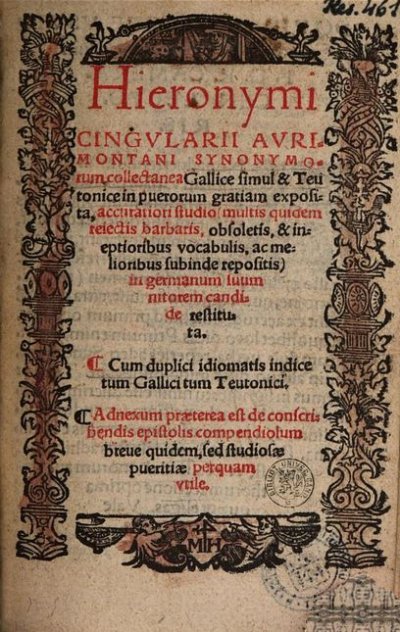 Res. 461
Hieronymi
CINGVLARII AVRI-
MONTANI SYNONYMO-
rum collectanea Gallice simul & Teu
tonice in puerorum gratiam exposi-
ta, accuratiori studio (multis quidem
reiectis barbaris, obsoletis, & in-
eptioribus vocabulis, ac me-
lioribus subinde repositis)
in germanum suum
nitorem candi-
de restitu-
ta.
¶ Cum duplici idiomatis indice
tum Gallici tum Teutonici.
¶ Adnexum præterea est de conscri-
bendis epistolis compendiolum
breue quidem, sed studiosæ
pueritiæ perquam
vtile.
MH